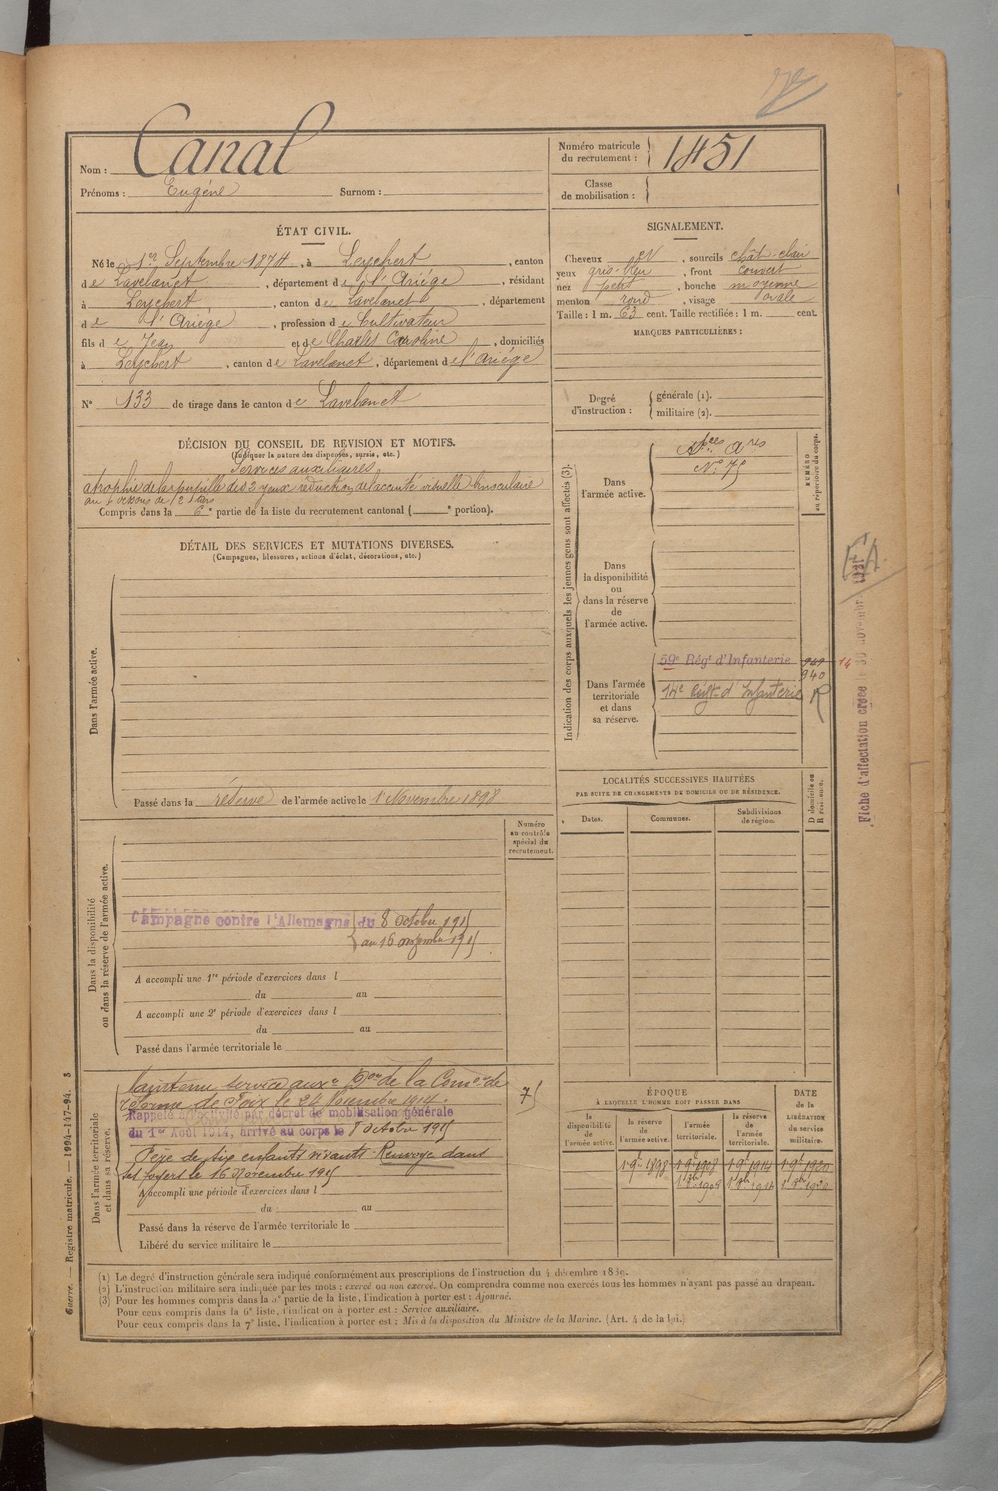 Nom : Canal
Prénoms : Eugéne Surnom :
Numéro matricule
du recrutement : 1451
Classe
de mobilisation :
ÉTAT CIVIL.
Né le 1er Septembre 1874, à Leychert, canton
de Lavelanet, département de l'Ariége, résidant
à Leychert, canton de Lavelanet, département
de l'Ariége, profession de Cultivateur
fils de Jean et de Charles Caroline, domiciliés
à Leychert, canton de Lavelanet, département de l'Ariége
N° 133 de tirage dans le canton de Lavelanet
SIGNALEMENT.
Cheveux , sourcils chât-clair
yeux gris-bleu, front couvert
nez petit, bouche moyenne
menton rond, visage ovale
Taille : 1 m. 63 cent. Taille rectifiée : 1 m. cent.
MARQUES PARTICULIÈRES :
Degré
d'instruction :
générale (1).
militaire (2).
DÉCISION DU CONSEIL DE REVISION ET MOTIFS.
(Indiquer la nature des dispenses, sursis, etc.)
Services auxiliaires
atrophie de la pupille des 2 yeux réduction de l'acuité visuelle binoculaire
Compris dans la 6e partie de la liste du recrutement cantonal ( e portion).
DÉTAIL DES SERVICES ET MUTATIONS DIVERSES.
(Campagnes, blessures, actions d'éclat, décorations, etc.)
Dans l'armée active.
Passé dans la réserve de l'armée active le 1 Novembre 1898
Indication des corps auxquels les jeunes gens sont affectés (3).
NUMÉRO
au répertoire du corps.
Dans
l'armée active.
Sces Ares
N° 75
Dans
la disponibilité
ou
dans la réserve
de
l'armée active.
Dans l'armée
territoriale
et dans
sa réserve.
59e Régt d'Infanterie
14
940
14e Régt d'Infanterie R
Fiche d'affectation créée le
LOCALITÉS SUCCESSIVES HABITÉES
PAR SUITE DE CHANGEMENTS DE DOMICILE OU DE RÉSIDENCE.
D domicile ou
R résidence.
Dates. Communes. Subdivisions
de région.
Numéro
au contrôle
spécial du
recrutement.
Dans la disponibilité
ou dans la réserve de l'armée active.
Campagne contre l'Allemagne du 8 octobre 1915
au 16 novembre 1915
A accompli une 1re période d'exercices dans l
du au
A accompli une 2e période d'exercices dans l
du au
Passé dans l'armée territoriale le
Dans l'armée territoriale
et dans sa réserve.
Maintenu service auxre Don de la Comon de
réforme de Foix le 24 Novembre 1914.
Rappelé à l'activité par décret de mobilisation générale
du 1er Août 1914, arrivé au corps le 8 octobre 1915
Père de six enfants vivants. Renvoyé dans
ses foyers le 16 Novembre 1915
A accompli une période d'exercices dans l
du au
Passé dans la réserve de l'armée territoriale le
Libéré du service militaire le
75
ÉPOQUE
À LAQUELLE L'HOMME DOIT PASSER DANS
DATE
de la
LIBÉRATION
du service
militaire.
la
disponibilité
de
l'armée active.
la réserve
de
l'armée active.
l'armée
territoriale.
la réserve
de
l'armée
territoriale.
1 9e 1898 1 9e 1908 1 9e 1914 1 9e 1920
Guerre. — Registre matricule. — 1994-147-94. 3
(1) Le degré d'instruction générale sera indiqué conformément aux prescriptions de l'instruction du 4 décembre 1889.
(2) L'instruction militaire sera indiquée par les mots : exercé ou non exercé. On comprendra comme non exercés tous les hommes n'ayant pas passé au drapeau.
(3) Pour les hommes compris dans la 5e partie de la liste, l'indication à porter est : Ajourné.
Pour ceux compris dans la 6e liste, l'indication à porter est : Service auxiliaire.
Pour ceux compris dans la 7e liste, l'indication à porter est : Mis à la disposition du Ministre de la Marine. (Art. 4 de la loi.)